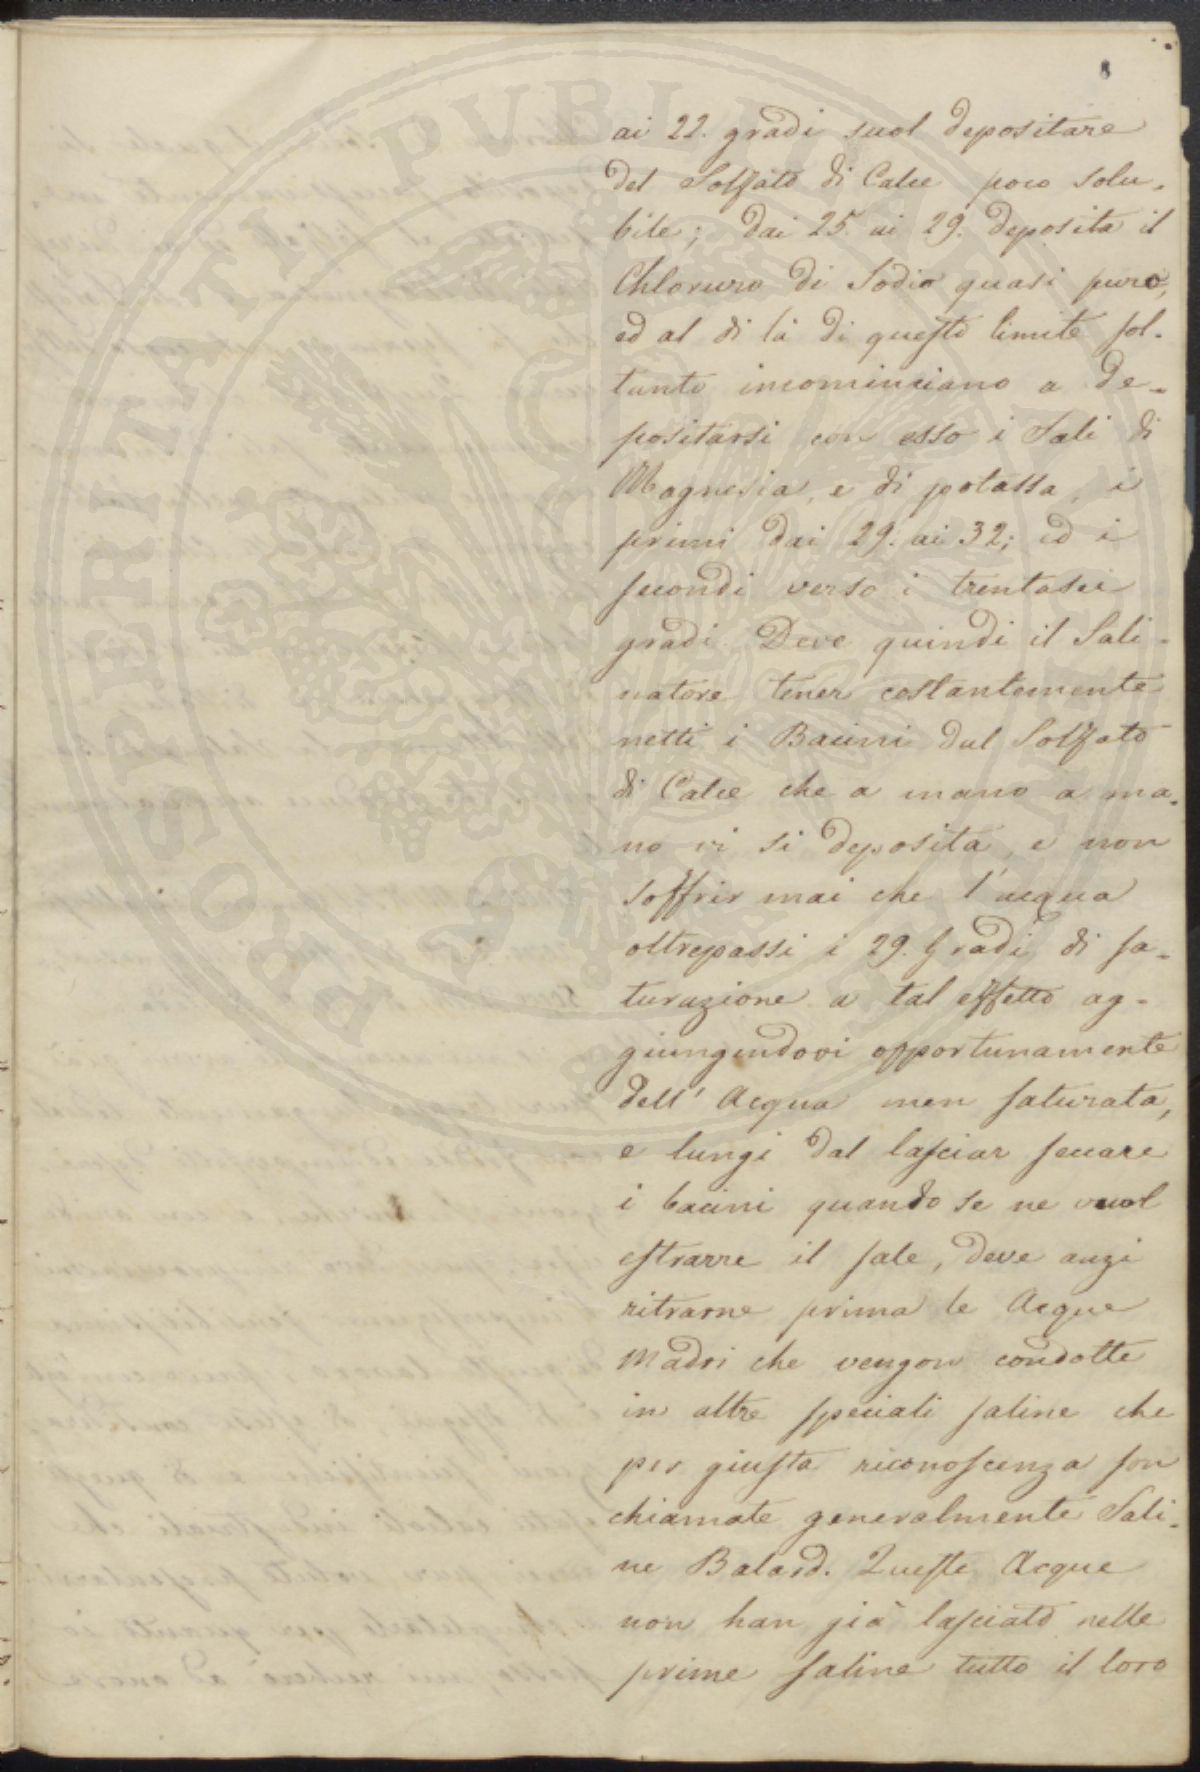 8
ai 22. gradi suol depositare
del Solfato di Calce poco solu-
bile; dai 25. ai 29. deposita il
Chloruro di Sodio quasi puro,
ed al di là di questo limite sol-
tanto incominciano a de-
positarsi con esso i Sali di
Magnesia, e di potassa, i
primi dai 29. ai 32; ed i
secondi verso i trentasei
gradi. Deve quindi il Sali-
natore tener costantemente
netti i Bacini dal Solfato
di Calce che a mano a ma-
no vi si deposita, e non
soffrir mai che l'acqua
oltrepassi i 29. Gradi di sa-
turazione a tal effetto ag-
giungendovi opportunamente
dell' Acqua men saturata,
e lungi dal lasciar seccare
i bacini quando se ne vuol
estrarre il sale, deve anzi
ritrarne prima le Acque
Madri che vengon condotte
in altre speciali saline che
per giusta riconoscenza son
chiamate generalmente Sali-
ne Balard. Queste Acque
non han già lasciato nelle
prime saline tutto il loro
PROSPERITATI PUBLICAE